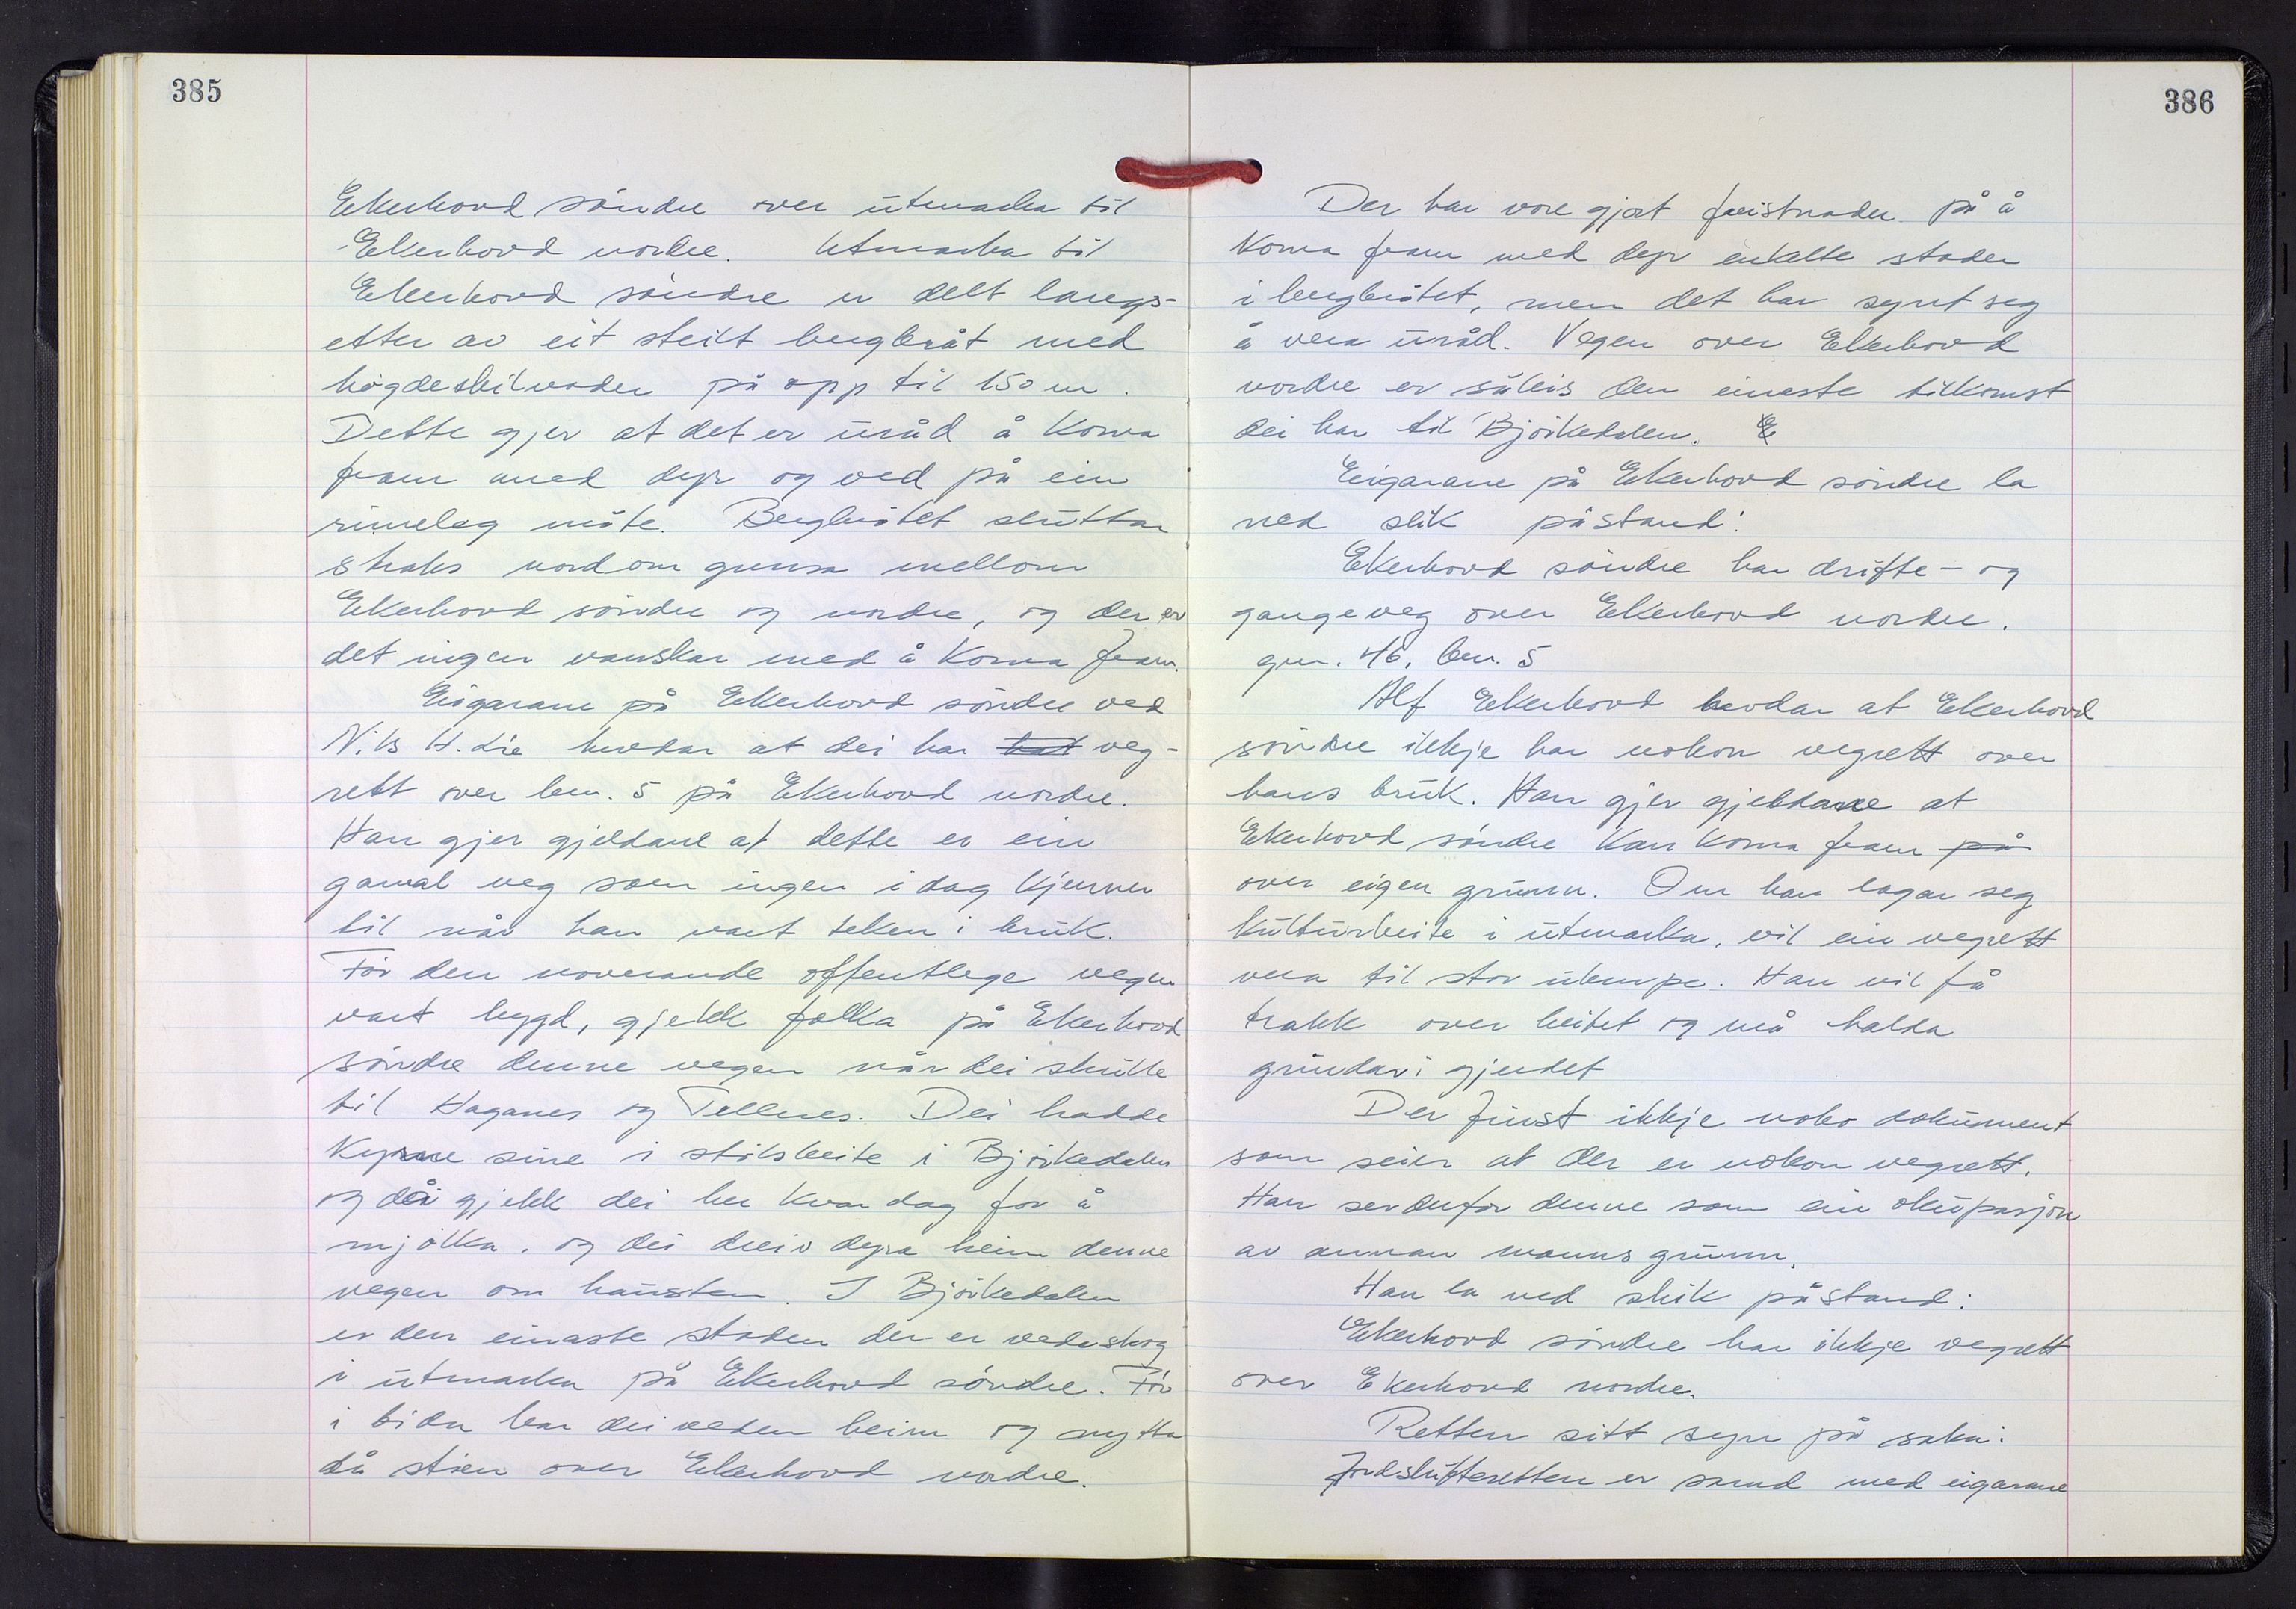 385
Ekerhovd söndre over utmarka til
Ekerhovd nordre. Utmarka til
Ekerhovd söndre er delt langs-
etter av eit steilt bergbråt med
högdeskilnader på opp til 150 m.
Dette gjer at det er uråd å koma
fram med dyr og ved på ein
rimeleg måte. Bergbråtet sluttar
straks nordom grensa mellom
Ekerhovd söndre og nordre, og der er
det ingen vanskar med å koma fram.
Eigarane på Ekerhovd söndre ved
Nils H. Lie hevdar at dei har hat veg-
rett over bnr. 5 på Ekerhovd nordre.
Han gjer gjeldane at dette er ein
gamal veg som ingen i dag kjenner
til når han vart teken i bruk.
För den noverande offentlege vegen
vart bygd, gjekk folka på Ekerhovd
söndre denne vegen når dei skulle
til Haganes og Tellnes. Dei hadde
kyrne sine i stölsbeite i Björkedalen
og då gjekk dei her kvar dag for å
mjölka, og dei dreiv dyra heim denne
vegen om hausten. I Björkedalen
er den einaste staden der er vedaskog
i utmarka på Ekerhovd söndre. För
i tida bar dei veden heim og nytta
då stien over Ekerhovd nordre.
386
Der har vore gjort freistnader på å
koma fram med dyr enkelte stader
i bergbråtet, men det har synt seg
å vera uråd. Vegen over Ekerhovd
nordre er såleis den eineste tilkomst
dei har til Björkedalen. E
Eigarane på Ekerhovd söndre la
ned slik påstand:
Ekerhovd söndre har drifte- og
gangeveg over Ekerhovd nordre.
gnr. 46, bnr. 5
Alf Ekerhovd hevdar at Ekerhovd
söndre ikkje har nokon vegrett over
hans bruk. Han gjer gjeldane at
Ekerhovd söndre kan koma fram på
over eigen grunn. Om han lagar seg
kulturbeite i utmarka, vil ein vegrett
vera til stor ulempe. Han vil få
trakk over beitet og må halda
grindar i gjerdet
Der finst ikkje noko dokument
som seier at der er nokon vegrett.
Han ser derfor denne som ein okupasjon
av annan manns grunn.
Han la ned slik påstand:
Ekerhovd söndre har ikkje vegrett
over Ekerhovd nordre.
Retten sitt syn på saka:
Jordskifteretten er samd med eigarane